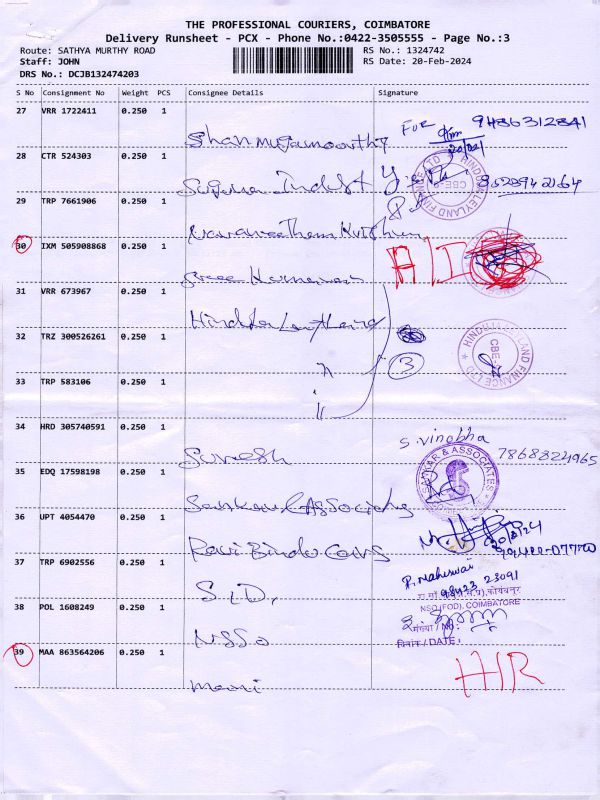 THE PROFESSIONAL COURIERS, COIMBATORE
Delivery Runsheet - PCX - Phone No.:0422-3505555 - Page No.:3
Route: SATHYA MURTHY ROAD
RS No.: 1324742
Staff: JOHN
RS Date: 20-Feb-2024
DRS No.: DCJB132474203
S No Consignment No Weight PCS Consignee Details Signature
27 VRR 1722411 0.250 1
Shanmugamoorthy
FOR 9486312841
28 CTR 524303 0.250 1
29 TRP 7661906 0.250 1
30 IXM 505908868 0.250 1
Sree Kumaran
31 VRR 673967 0.250 1
32 TRZ 300526261 0.250 1
3
HINDUJA LEYLAND FINANCE LTD
CBE-
33 TRP 583106 0.250 1
34 HRD 305740591 0.250 1
Suresh
S. Vinobha
7868824965
35 EDQ 17598198 0.250 1
SANKAR & ASSOCIATES
36 UPT 4054470 0.250 1
Ravi Bindo Cars
20/2/24
37 TRP 6902556 0.250 1
P. Maheswari
98423 23091
38 POL 1608249 0.250 1
NSSO
NSO (FOD), COIMBATORE
दिनांक / DATE:
39 MAA 863564206 0.250 1
Mani